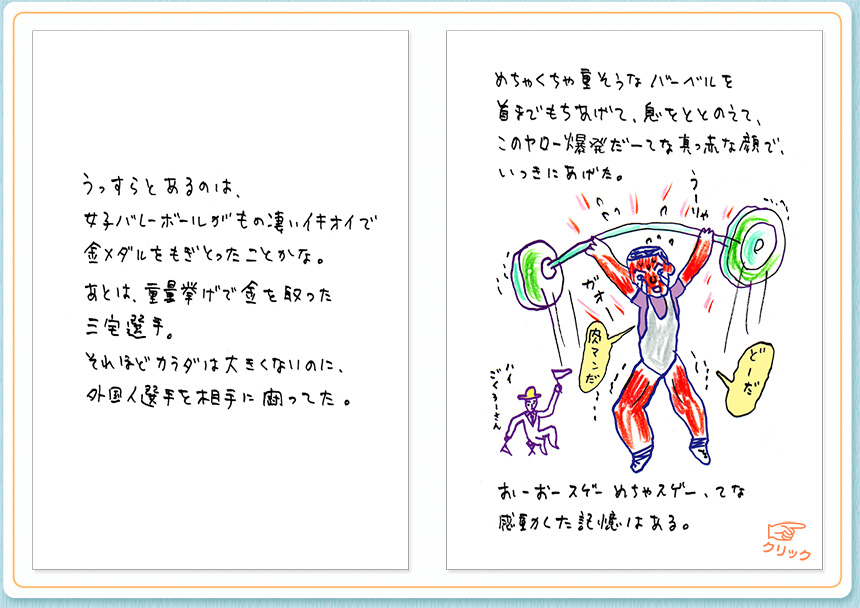 うっすらとあるのは、
女子バレーボールがもの凄いイキオイで
金メダルをもぎとったことかな。
あとは、重量挙げで金を取った
三宅選手。
それほどカラダは大きくないのに、
外国人選手を相手に闘ってた。
めちゃくちゃ重そうなバーベルを
首までもちあげて、息をととのえて、
このヤロー爆発だーてな真っ赤な顔で、
いっきにあげた。
うーりゃ
ガオー
肉マンだ
どーだ
ハイ
ごくろーさん
おーおースゲーめちゃスゲー、てな
感動した記憶はある。
クリック